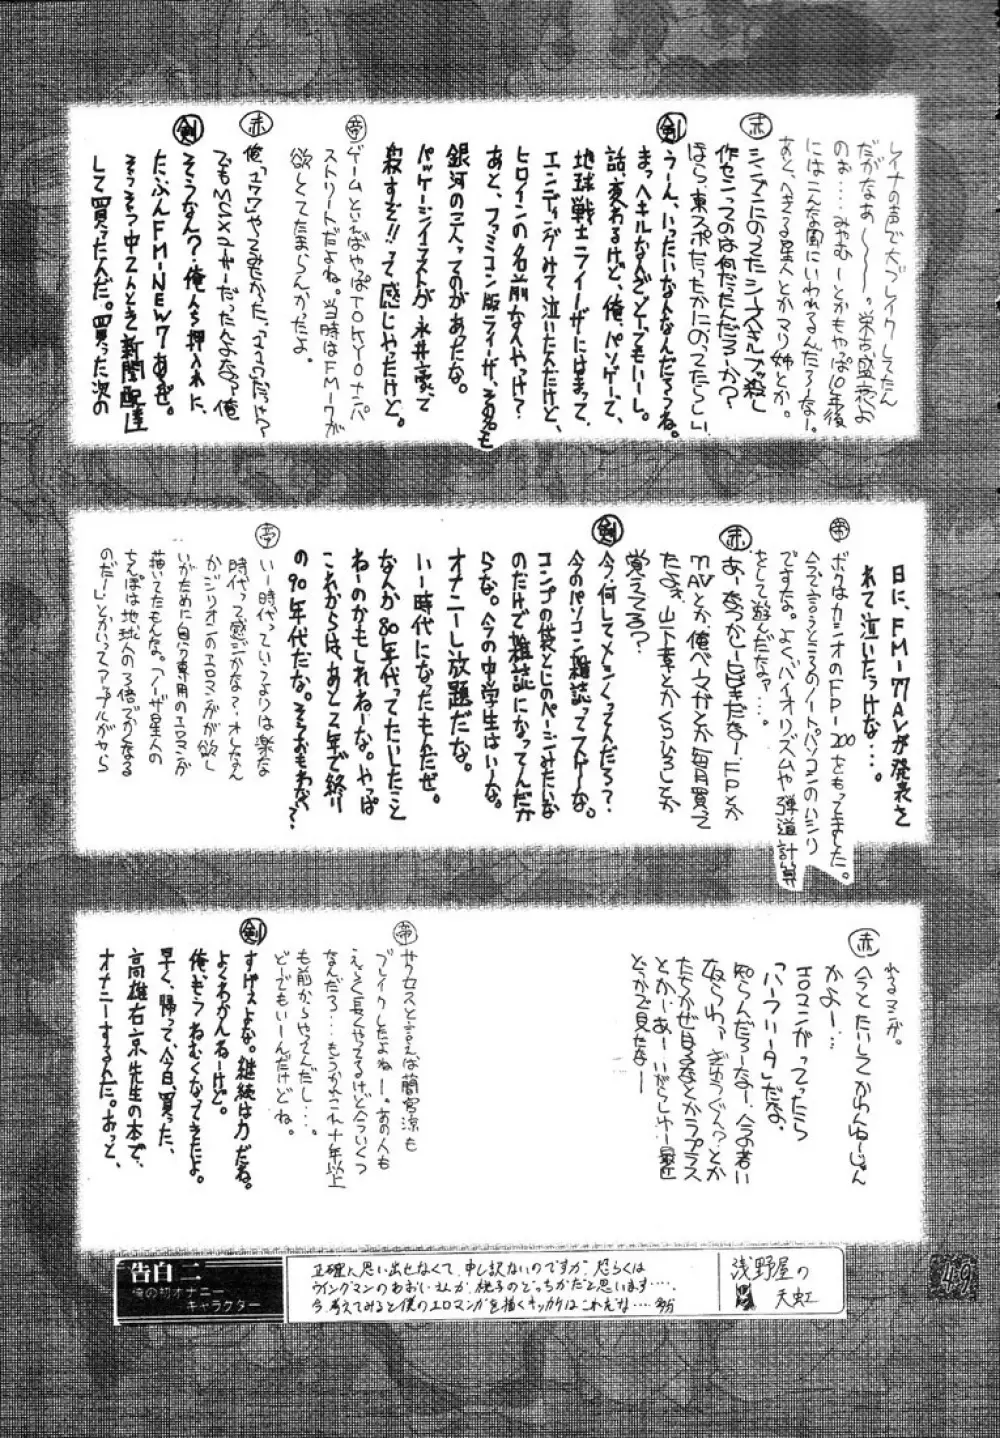 レイナの声で大ブレイクしてたん
だがなぁ〜〜〜。栄古盛衰よ
のぉ…みやむーとかもやっぱ10年後
にはこんな風にいわれるんだろーなー。
あと、へきる星人とかマリ姉とか。
赤
作センってのは何だったんだろうか?
ほら、東スポだったかにのってたらしい
剣
うーん、いったいなんなんだろうね。
まっヘキルなんざどーでもいーし。
話、変わるけど、俺、パソゲーで、
地球戦士ライーザにはまって、
エンディングみて泣いたんだけど、
ヒロインの名前なんやっけ?
あと、ファミコン版ライーザ、その名も
銀河の三人ってのがあったな。
パッケージイラストが永井豪で
殺すぞ!!って感じやったけど。
帝
ゲームといえばやっぱTOKYOナンパ
ストリートだよね。当時はFM-7が
欲しくてたまらんかったよ。
赤
でもMSXユーザーだったんよなっ俺
剣
そうなん?俺んち押入れに、
たぶんFM-NEW7あるぜ。
そっそっ中2んとき新聞配達
して買ったんだ。買った次の
日に、FM-77AVが発表さ
れて泣いたっけな…。
帝
ボクはカシオのFP-200をもってました。
今で言うところのノートパソコンのハシリ
ですな。よくバイオリズムや弾道計算
をして遊んだなァ…。
赤
あーなつかしーひびきだなー、FPとか
77AVとか、俺ベーマガとか毎月買って
たよぉ、山下章とかくらひろしとか
覚えてる?
剣
今、何してメシくってんだろう?
今のパソコン雑誌ってスゲーな。
コンプの袋とじのページみたいな
のだけで雑誌になってんだか
らな。今の中学生はいーな。
オナニーし放題だな。
いー時代になったもんだぜ。
なんか80年代ってたいしたこと
ねーのかもしれねーな。やっぱ
これからは、あと2年で終り
の90年代だな。そうおもわない?
帝
いー時代っていうよりは楽な
時代って感じかな?オレなん
かジリオンのエロマンガが欲し
いがために自分専用のエロマンガ
描いてたもんな。「ノーザ星人の
ちんぽは地球人の3倍でかくなる
のだー!」とかいってアップルがヤら
れるマンガ。
赤
今とたいしてかわんねーじゃん
かよー…
エロマンガってったら
「ハーフリータ」だな、
知らんだろーなー、今の若い
とかー、あー、いがらしゆー最近
どっかで見たなー
帝
サクセスと言えば蘭宮涼も
ブレイクしたよねー。あの人も
えらく長くやってるけど今いくつ
なんだろ…もうかれこれ十年以上
も前からやってんだし…。
どーでもいーんだけどね。
剣
すげェよな。継続は力だね。
よくわかんねーけど。
俺もうねむくなってきたよ。
早く、帰って、今日、買った、
高雄右京先生の本で、
オナニーするんだ。おっと、
告白二
俺の初オナニー
キャラクター
正確に思い出せなくて、申し訳ないのですが、恐らくは
ウイングマンのあおいさんか、桃子のどっちかだと思います……
今考えてみると僕のエロマンガを描くキッカケはこれだな……多分
浅野屋の
天虹
49